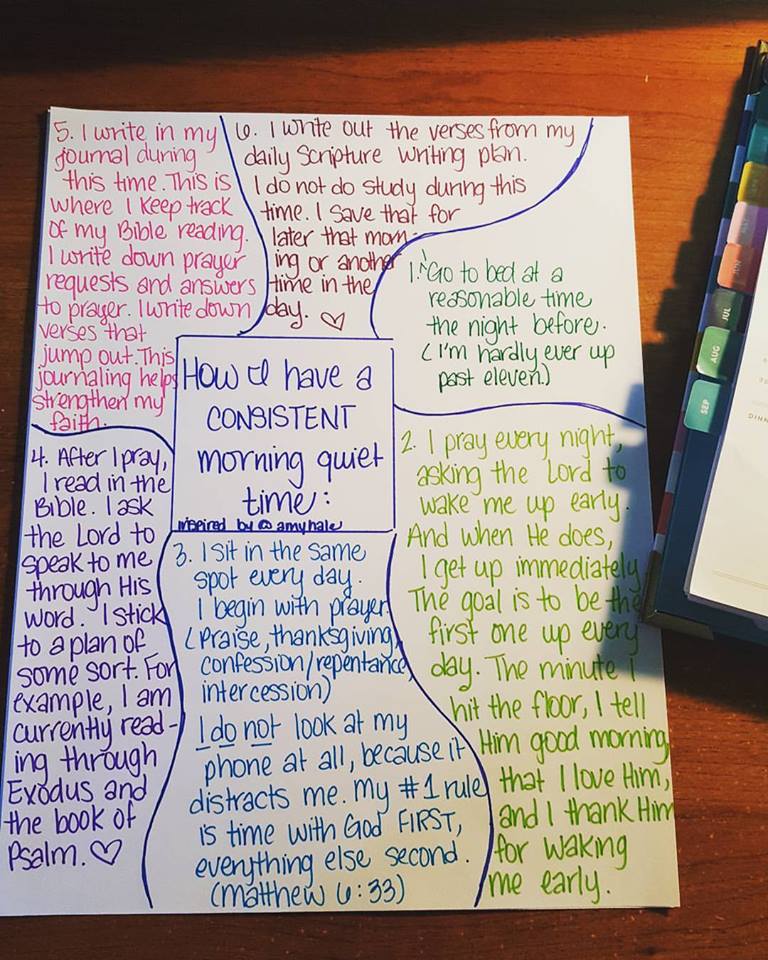 How I have a
CONSISTENT
morning quiet
time:
inspired by @amyhale
1. Go to bed at a
reasonable time
the night before.
(I'm hardly ever up
past eleven.)
2. I pray every night,
asking the Lord to
wake me up early.
And when He does,
I get up immediately.
The goal is to be the
first one up every
day. The minute I
hit the floor, I tell
Him good morning,
that I love Him,
and I thank Him
for waking
me early.
3. I sit in the same
spot every day.
I begin with prayer
(Praise, thanksgiving,
confession/repentance,
intercession)
I do not look at my
phone at all, because it
distracts me. My #1 rule
is time with God FIRST,
everything else second.
(Matthew 6:33)
4. After I pray,
I read in the
Bible. I ask
the Lord to
speak to me
through His
word. I stick
to a plan of
some sort. For
example, I am
currently read-
ing through
Exodus and
the book of
Psalm. ♡
5. I write in my
journal during
this time. This is
where I keep track
of my Bible reading.
I write down prayer
requests and answers
to prayer. I write down
verses that
jump out. This
journaling helps
strengthen my
faith.
6. I write out the verses from my
daily Scripture writing plan.
I do not do study during this
time. I save that for
later that morn-
ing or another
time in the
day. ♡
JUL
AUG
SEP